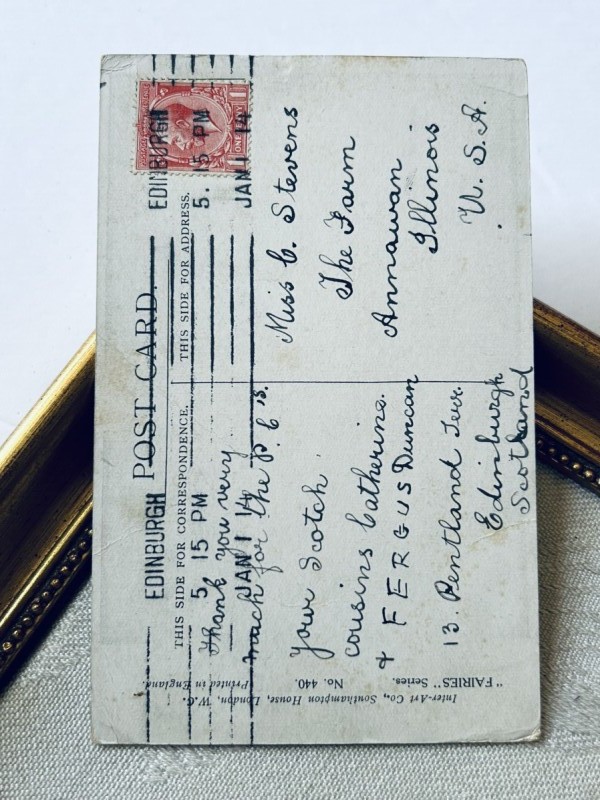 POST CARD.
THIS SIDE FOR CORRESPONDENCE.
THIS SIDE FOR ADDRESS.
EDINBURGH
5 15 PM
JAN 1 14
EDINBURGH
5. 15 PM
JAN 1 14
Thank you very
much for the P. C's.
Your Scotch
cousins Catherine.
& FERGUS Duncan
13. Pentland Terr.
Edinburgh
Scotland
Miss C. Stevens
The Farm
Annawan
Illinois
U. S. A.
Inter-Art Co., Southampton House, London, W.C. Printed in England.
"FAIRIES" Series. No. 440.